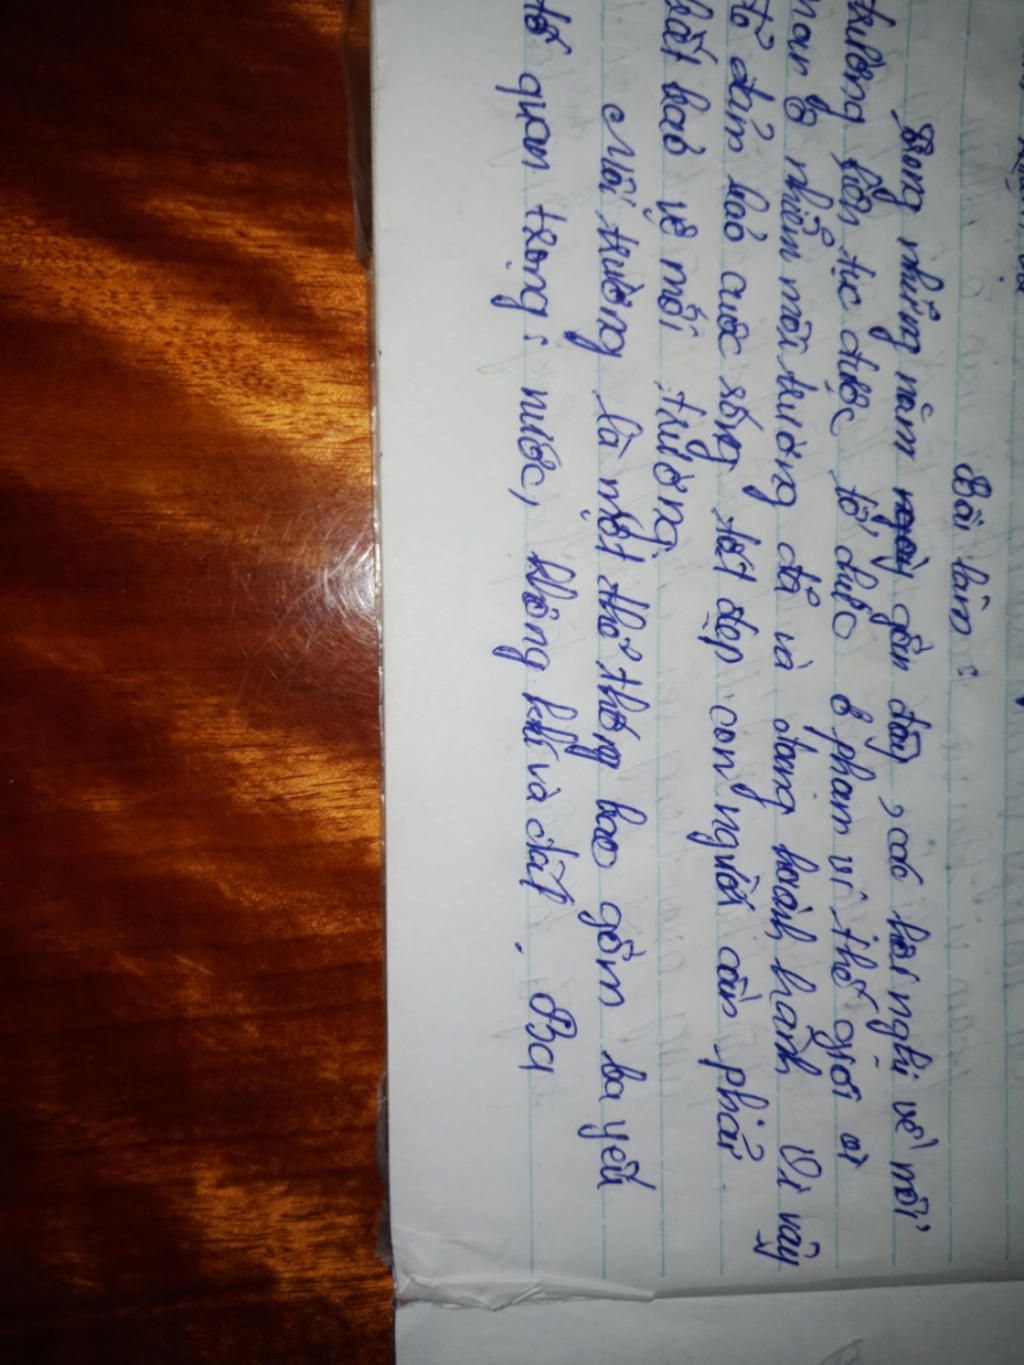 Bài làm:
Trong những năm gần đây, các hội nghị về môi
trường liên tục được tổ chức ở phạm vi thế giới vì
nạn ô nhiễm môi trường đã và đang hoành hành Vì vậy
để đảm bảo cuộc sống tốt đẹp con người cần phải
biết bảo vệ môi trường.
Môi trường là một thể thống bao gồm ba yếu
tố quan trọng: nước, không khí và đất. Ba